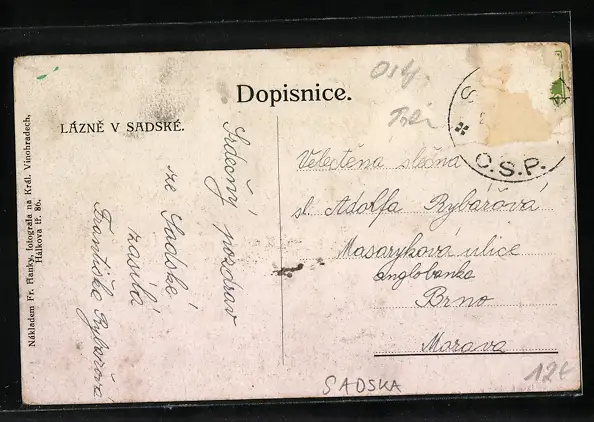 Dopisnice.
LÁZNĚ V SADSKÉ.
Nákladem Fr. Hanky, fotografa na Král. Vinohradech,
Hálkova tř. 86.
Srdečný pozdrav
ze Sadské
zasílá
Františka Rybářová
Velectěná slečna
sl. Adolfa Rybářová
Masaryková ulice
anglobanka
Brno
Morava
O.S.P.
SADSKA
12€